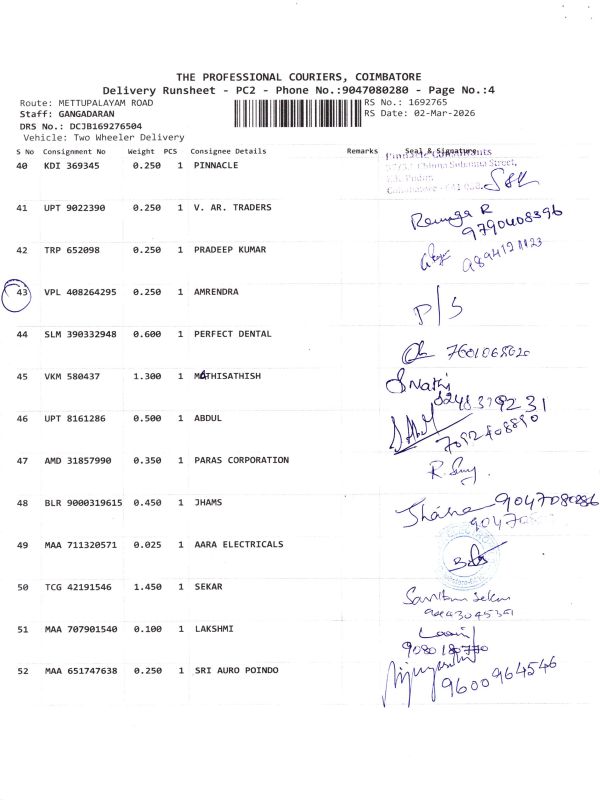 THE PROFESSIONAL COURIERS, COIMBATORE
Delivery Runsheet - PC2 - Phone No.:9047080280 - Page No.:4
Route: METTUPALAYAM ROAD RS No.: 1692765
Staff: GANGADARAN RS Date: 02-Mar-2026
DRS No.: DCJB169276504
Vehicle: Two Wheeler Delivery
S No Consignment No Weight PCS Consignee Details Remarks Seal & Signature
Pinnacle Consultants
40 KDI 369345 0.250 1 PINNACLE
41 UPT 9022390 0.250 1 V. AR. TRADERS Renuga R
9790408396
42 TRP 652098 0.250 1 PRADEEP KUMAR
43 VPL 408264295 0.250 1 AMRENDRA P/S
44 SLM 390332948 0.600 1 PERFECT DENTAL
45 VKM 580437 1.300 1 MATHISATHISH
46 UPT 8161286 0.500 1 ABDUL
47 AMD 31857990 0.350 1 PARAS CORPORATION
48 BLR 9000319615 0.450 1 JHAMS
49 MAA 711320571 0.025 1 AARA ELECTRICALS
50 TCG 42191546 1.450 1 SEKAR
51 MAA 707901540 0.100 1 LAKSHMI
52 MAA 651747638 0.250 1 SRI AURO POINDO
9600964546